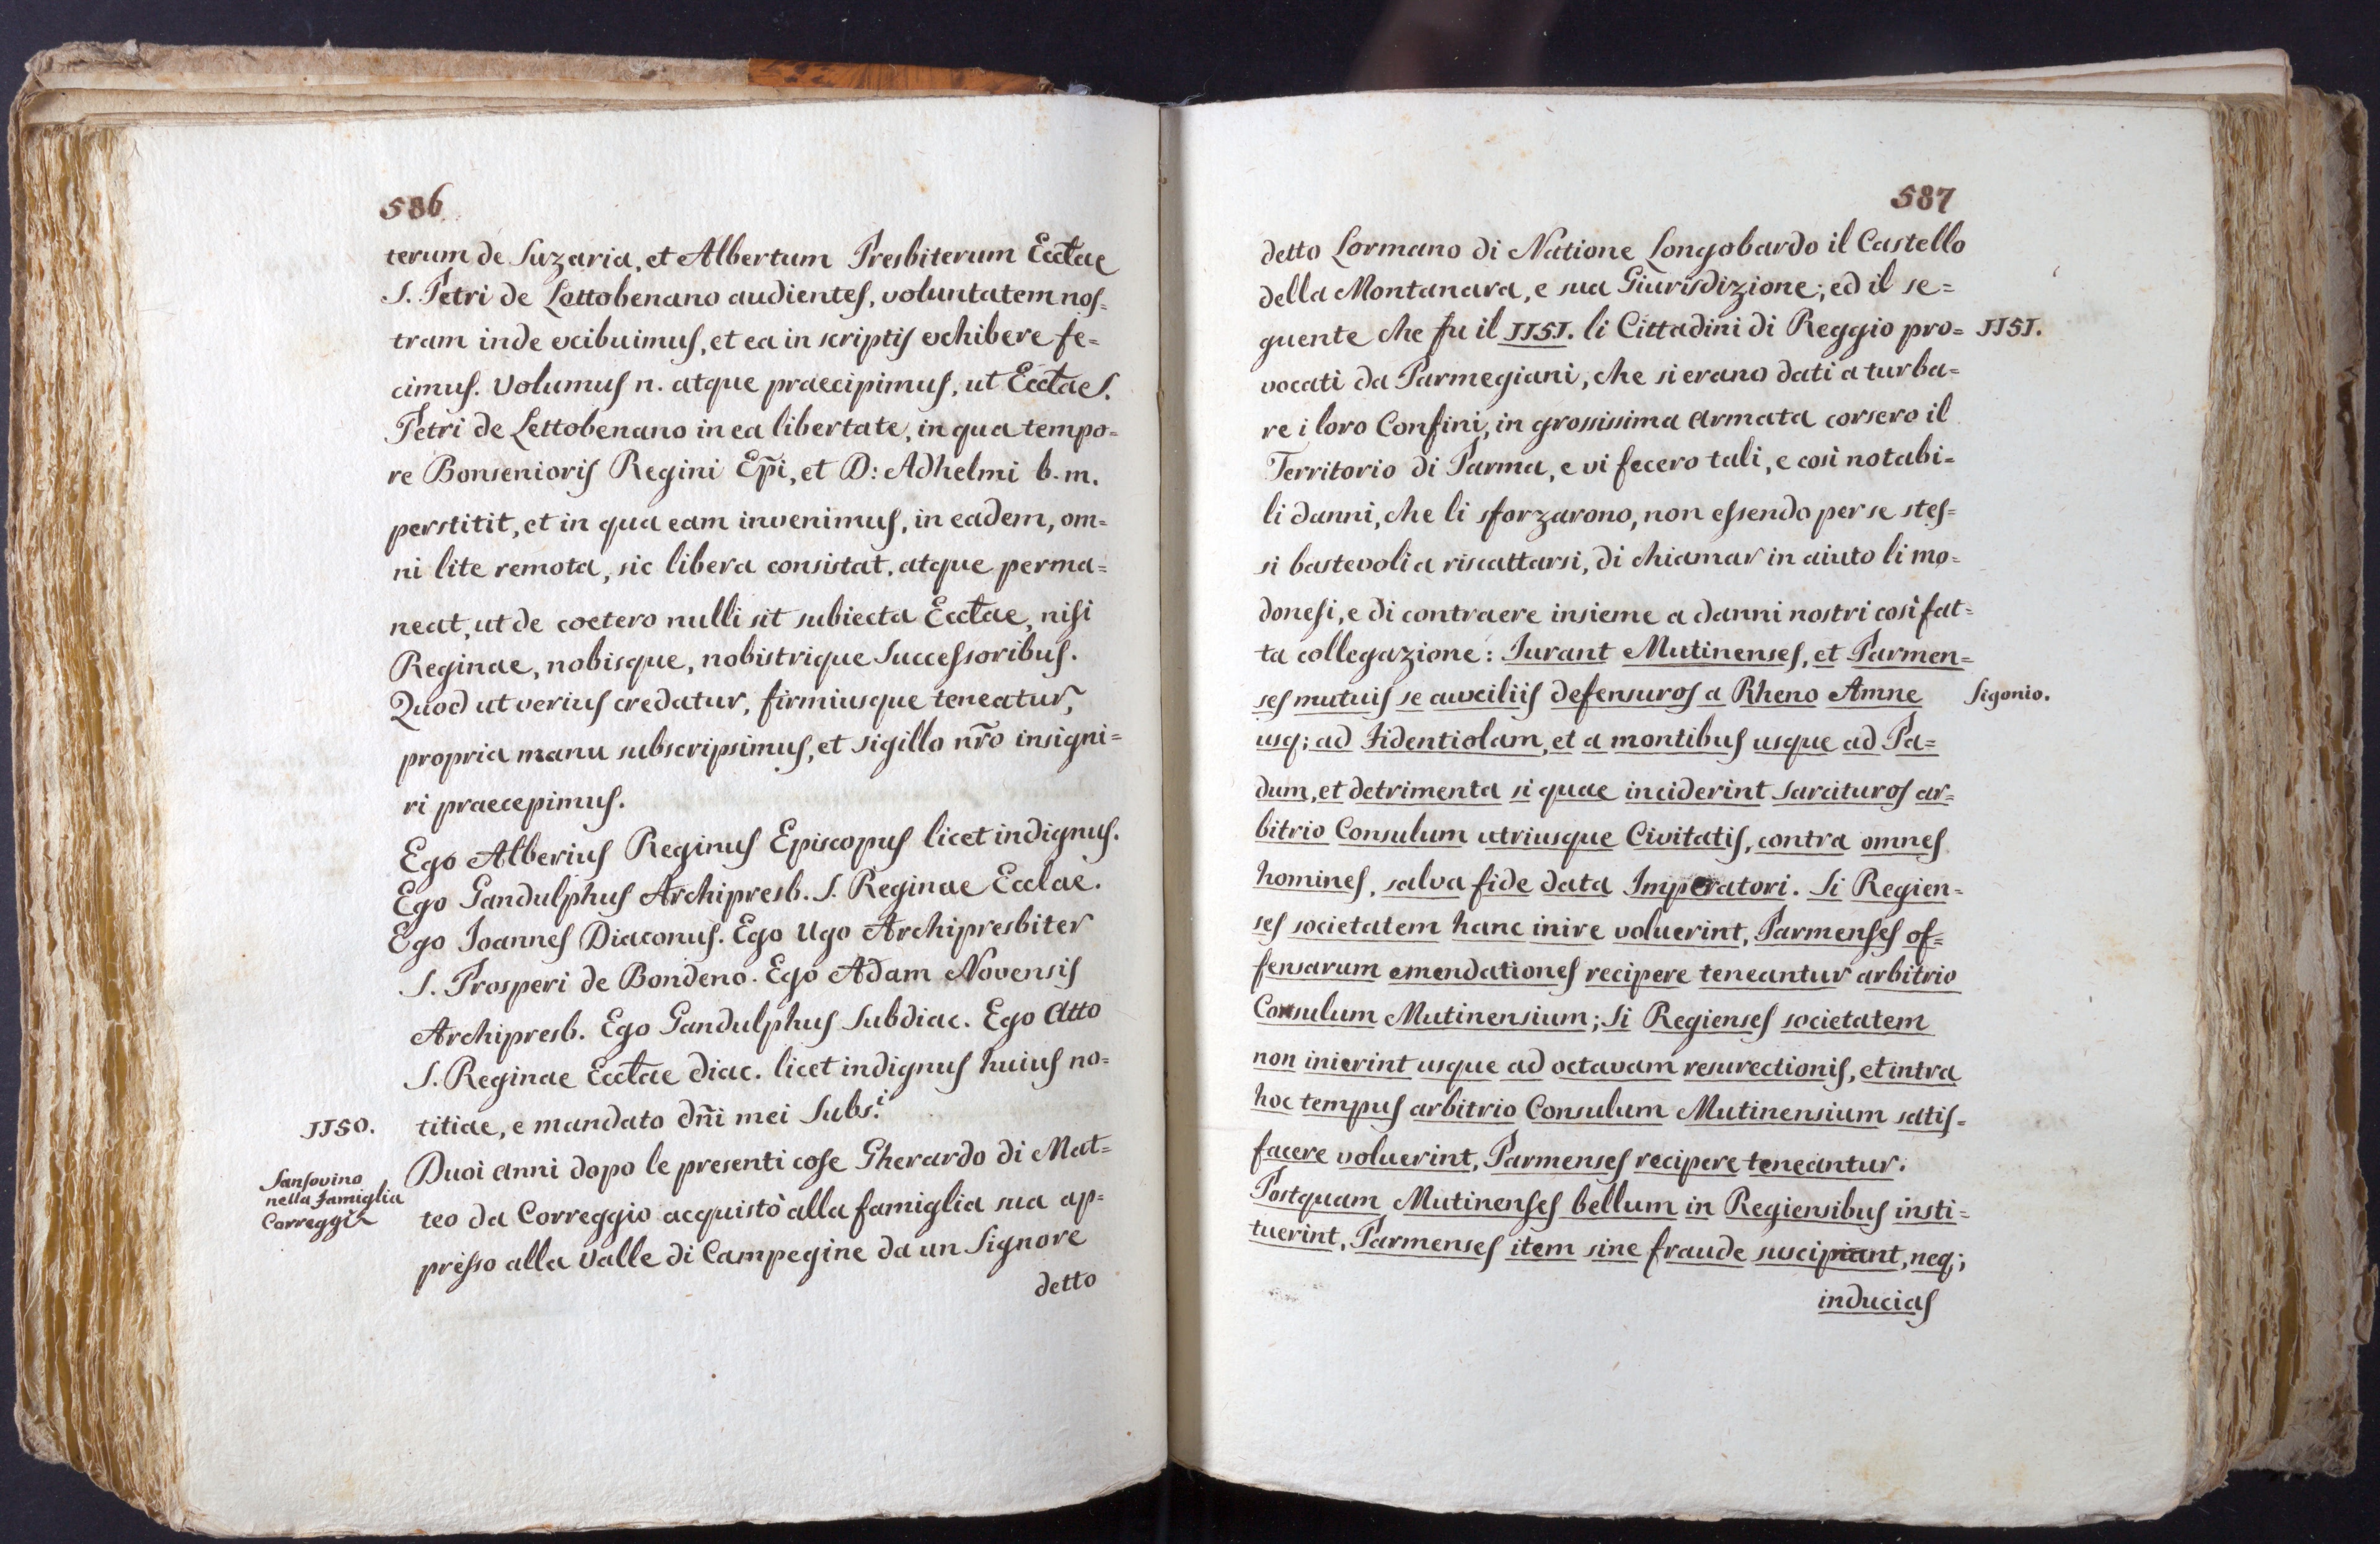 586
terum de Suzaria, et Albertum Presbiterum Ecctae
S. Petri de Lottobenano audientes, voluntatem nos=
tram inde excibuimus, et ea in scriptis exhibere fe=
cimus. Volumus n. atque praecipimus, ut Ecctae S.
Petri de Lettobenano in ea libertate, in qua tempo=
re Bonsenioris Regini Epi, et D: Adhelmi b. m.
perstitit, et in qua eam invenimus, in eadem, om=
ni lite remota, sic libera consistat, atque perma=
neat, ut de coetero nulli sit subiecta Ecctae, nisi
Reginae, nobisque, nobistrique Successoribus.
Quod ut verius credatur, firmiusque teneatur,
propria manu subscripsimus, et sigillo nr̃o insigni=
ri praecepimus.
Ego Alberius Reginus Episcopus licet indignus.
Ego Gandulphus Archipresb. S. Reginae Ecclae.
Ego Joannes Diaconus. Ego Ugo Archipresbiter
S. Prosperi de Bondeno. Ego Adam Novensis
Archipresb. Ego Gandulphus Subdiac. Ego Atto
S. Reginae Ecctae diac. licet indignus huius no=
titiae, e mandato dñi mei Subs.i
1150.
Duoi anni dopo le presenti cose Gherardo di Mat=
Sansovino
nella Famiglia
Correggia
teo da Correggio acquistò alla famiglia sua ap=
presso alla Valle di Campegine da un Signore
detto
587
detto Lormano di Natione Longobardo il Castello
della Montanara, e sua Giurisdizione; ed il se=
guente che fu il 1151. li Cittadini di Reggio pro=
1151.
vocati da Parmegiani, che si erano dati a turba=
re i loro Confini, in grossissima armata corsero il
Territorio di Parma, e vi fecero tali, e così notabi=
li danni, che li sforzarono, non essendo per se stes=
si bastevoli a riscattarsi, di chiamar in aiuto li mo=
donesi, e di contraere insieme a danni nostri così fat=
ta collegazione: Jurant Mutinenses, et Parmen=
ses mutuis se auxiliis defensuros a Rheno Amne
Sigonio.
usq; ad Fidentiolam, et a montibus usque ad Pa=
dum, et detrimenta si quae inciderint sarcituros ar=
bitrio Consulum utriusque Civitatis, contra omnes
homines, salva fide data Imperatori. Si Regien=
ses societatem hanc inire voluerint, Parmenses of=
fensarum emendationes recipere teneantur arbitrio
Consulum Mutinensium; Si Regienses societatem
non inierint usque ad octavam resurectionis, et intra
hoc tempus arbitrio Consulum Mutinensium satis=
facere voluerint, Parmenses recipere teneantur.
Postquam Mutinenses bellum in Regiensibus insti=
tuerint, Parmenses item sine fraude suscipiant, neq;
inducias